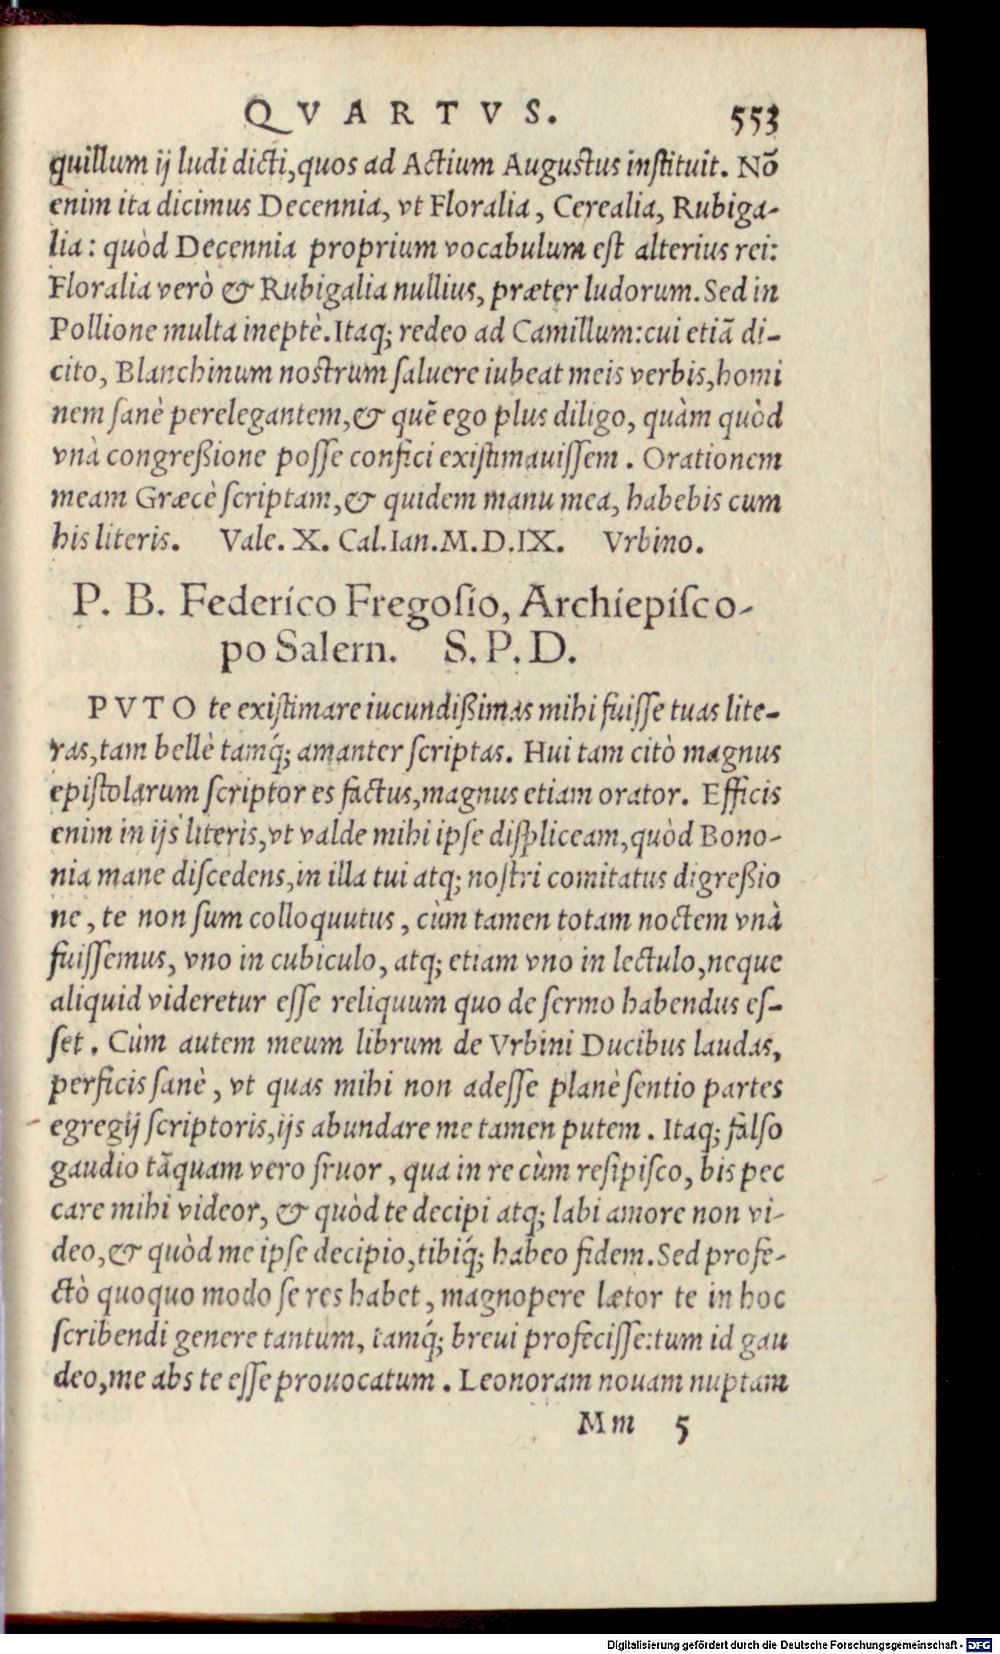 QVARTVS. 553
quillum ij ludi dicti, quos ad Actium Augustus instituit. Nō
enim ita dicimus Decennia, vt Floralia, Cerealia, Rubiga-
lia: quòd Decennia proprium vocabulum est alterius rei:
Floralia verò & Rubigalia nullius, præter ludorum. Sed in
Pollione multa ineptè. Itaq; redeo ad Camillum: cui etiā di-
cito, Blanchinum nostrum saluere iubeat meis verbis, homi
nem sanè perelegantem, & quē ego plus diligo, quàm quòd
vnà congreßione posse confici existimauissem. Orationem
meam Græcè scriptam, & quidem manu mea, habebis cum
his literis. Vale. X. Cal. Ian. M.D.IX. Vrbino.
P. B. Federico Fregosio, Archiepisco-
po Salern. S. P. D.
PVTO te existimare iucundißimas mihi fuisse tuas lite-
ras, tam bellè tamq́; amanter scriptas. Hui tam citò magnus
epistolarum scriptor es factus, magnus etiam orator. Efficis
enim in ijs literis, vt valde mihi ipse displiceam, quòd Bono-
nia mane discedens, in illa tui atq; nostri comitatus digreßio
ne, te non sum colloquutus, cùm tamen totam noctem vnà
fuissemus, vno in cubiculo, atq; etiam vno in lectulo, neque
aliquid videretur esse reliquum quo de sermo habendus es-
set. Cùm autem meum librum de Vrbini Ducibus laudas,
perficis sanè, vt quas mihi non adesse planè sentio partes
egregij scriptoris, ijs abundare me tamen putem. Itaq; falso
gaudio tāquam vero fruor, qua in re cùm resipisco, bis pec
care mihi videor, & quòd te decipi atq; labi amore non vi-
deo, & quòd me ipse decipio, tibiq́; habeo fidem. Sed profe-
ctò quoquo modo se res habet, magnopere lætor te in hoc
scribendi genere tantum, tamq́; breui profecisse: tum id gau
deo, me abs te esse prouocatum. Leonoram nouam nuptam
Mm 5
Digitalisierung gefördert durch die Deutsche Forschungsgemeinschaft - DFG